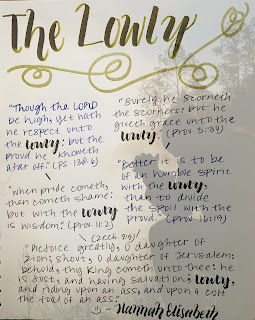 The Lowly
"Though the LORD
be high, yet hath
he respect unto
the lowly: but the
proud he knoweth
afar off." (Ps 138:6)
"Surely he scorneth
the scorners: but he
giveth grace unto the
lowly." (Prov 3:34)
"Better it is to be
of an humble spirit
with the lowly,
than to divide
the spoil with the
proud." (Prov 16:19)
"When pride cometh,
then cometh shame:
but with the lowly
is wisdom." (Prov 11:2)
(Zech 9:9)
"Rejoice greatly, O daughter of
Zion; shout, O daughter of Jerusalem:
behold, thy King cometh unto thee: he
is just, and having salvation; lowly,
and riding upon an ass, and upon a colt
the foal of an ass."
- Hannah Elisabeth